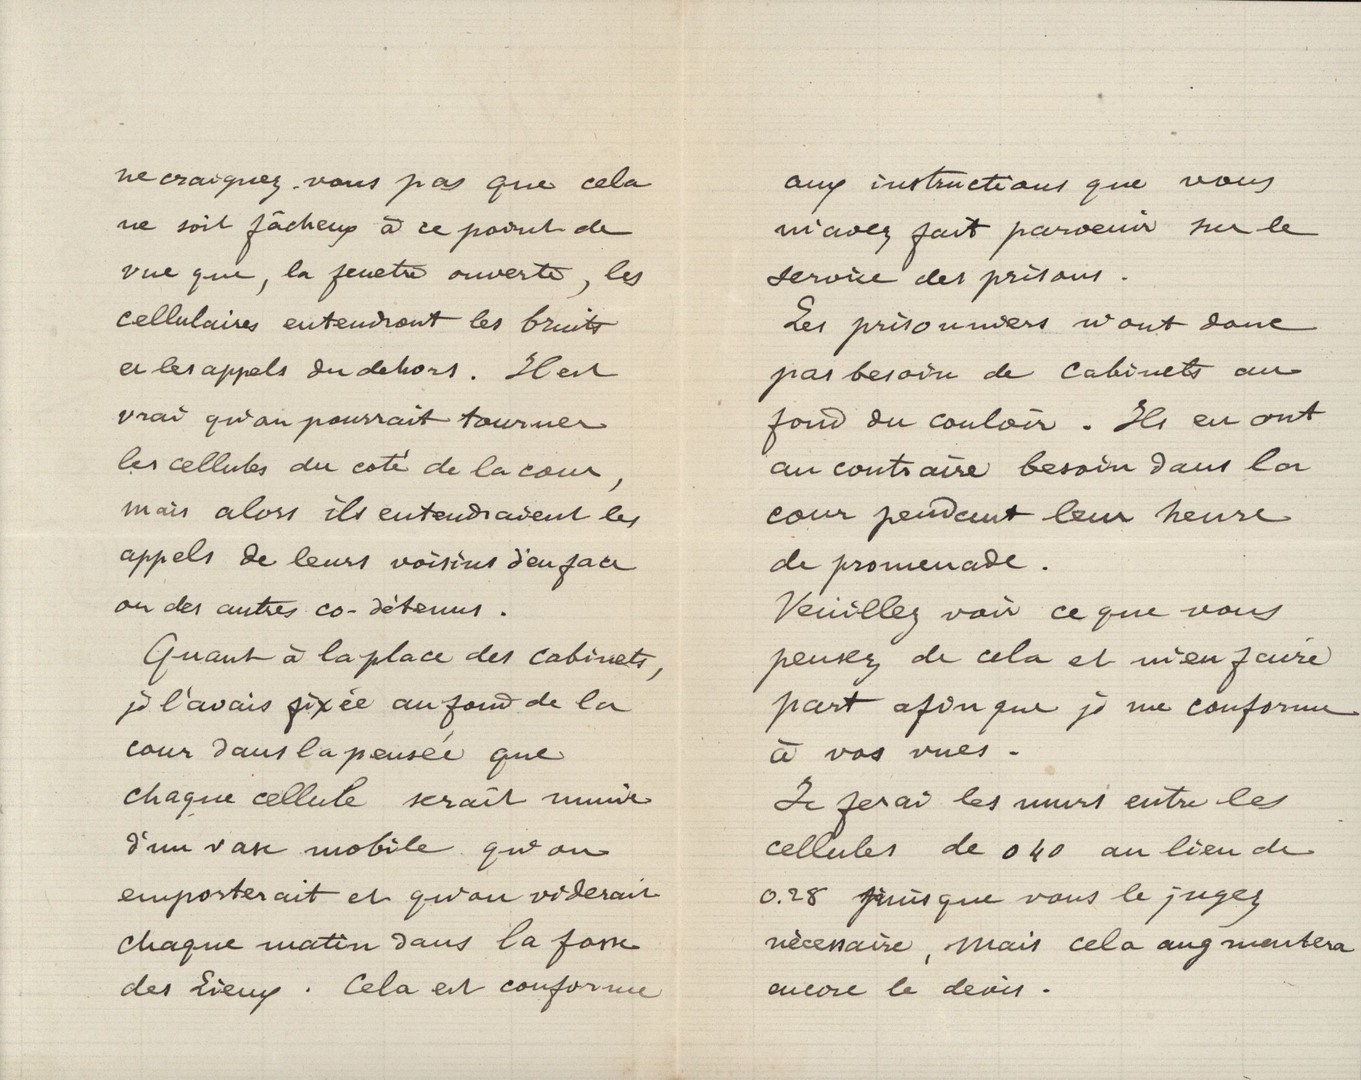 ne craignez-vous pas que cela
ne soit fâcheux à ce point de
vue que, la fenetre ouverte, les
cellulaires entendront les bruits
et les appels du dehors. Il est
vrai qu'on pourrait tourner
les cellules du coté de la cour,
mais alors ils entendraient les
appels de leurs voisins d'en face
ou des autres co-détenus.
Quant à la place des cabinets,
je l'avais fixée au fond de la
cour dans la pensée que
chaque cellule serait munie
d'un vase mobile qu'on
emporterait et qu'on viderait
chaque matin dans la fosse
des Lieux. Cela est conforme
aux instructions que vous
m'avez fait parvenir sur le
service des prisons.
Les prisonniers n'ont donc
pas besoin de Cabinets au
fond du couloir. Ils en ont
au contraire besoin dans la
cour pendant leur heure
de promenade.
Veuillez voir ce que vous
pensez de cela et m'en faire
part afin que je me conforme
à vos vues.
Je ferai les murs entre les
cellules de 0 40 au lieu de
0.28 puisque vous le jugez
nécessaire, mais cela augmentera
encore le devis.